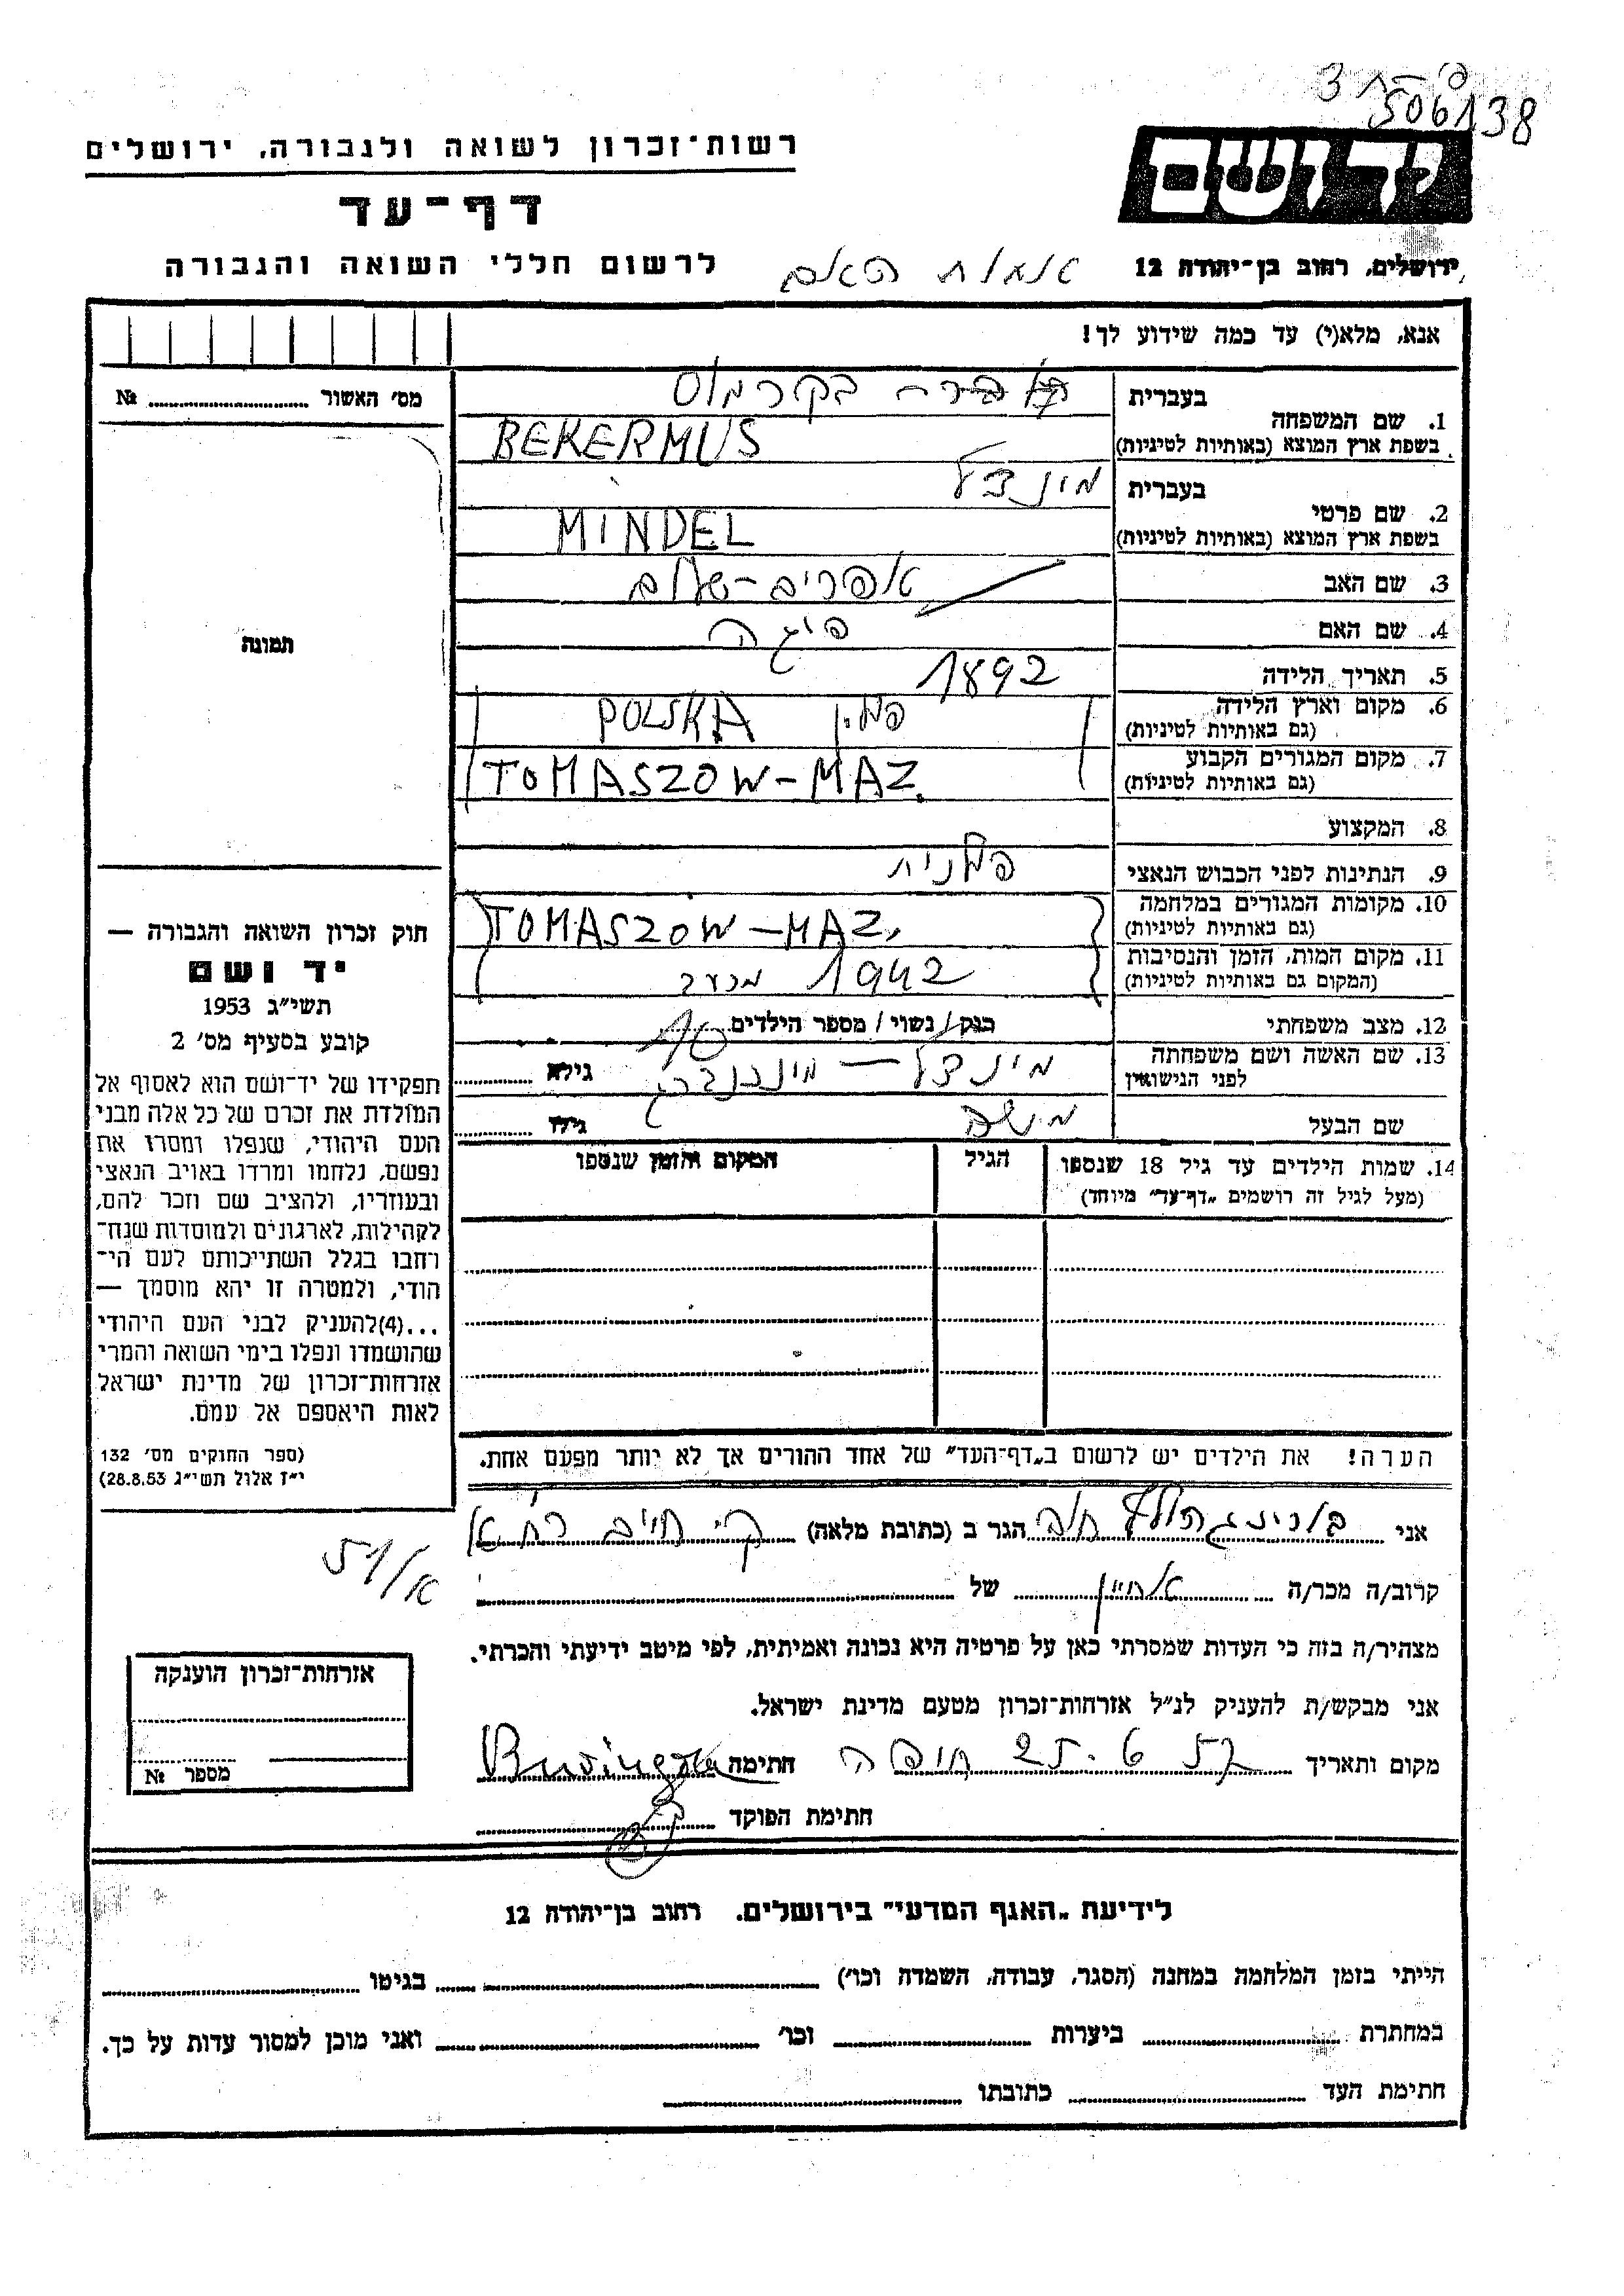 506138
רשות־זכרון לשואה ולגבורה, ירושלים
יד ושם
דף־עד
לרשום חללי השואה והגבורה
ירושלים, רחוב בן־יהודה 12
אנא, מלא(י) עד כמה שידוע לך!
מס׳ האשור № 
1. שם המשפחה
בעברית בקרמוס
בשפת ארץ המוצא (באותיות לטיניות) BEKERMUS
2. שם פרטי
בעברית מינדל
בשפת ארץ המוצא (באותיות לטיניות) MINDEL
3. שם האב אפרים־שלום
4. שם האם פיגה
תמונה
5. תאריך הלידה 1892
6. מקום וארץ הלידה פולין POLSKA
(גם באותיות לטיניות)
7. מקום המגורים הקבוע TOMASZOW-MAZ.
(גם באותיות לטיניות)
8. המקצוע
9. הנתינות לפני הכבוש הנאצי פולנית
10. מקומות המגורים במלחמה TOMASZOW-MAZ.
(גם באותיות לטיניות)
11. מקום המות, הזמן והנסיבות 1942
(המקום גם באותיות לטיניות)
12. מצב משפחתי רנק/נשוי/מספר הילדים
13. שם האשה ושם משפחתה מינדל — גילא
לפני הנישואין
שם הבעל משה גילו
14. שמות הילדים עד גיל 18 שנספו הגיל המקום והזמן שנספו
(מעל לגיל זה רושמים „דף־עד״ מיוחד)
חוק זכרון השואה והגבורה —
יד ושם
תשי״ג 1953
קובע בסעיף מס׳ 2
תפקידו של יד־ושם הוא לאסוף אל
המולדת את זכרם של כל אלה מבני
העם היהודי, שנפלו ומסרו את
נפשם, נלחמו ומרדו באויב הנאצי
ובעוזריו, ולהציב שם וזכר להם,
לקהילות, לארגונים ולמוסדות שנח־
רחבו בגלל השתייכותם לעם הי־
הודי, ולמטרה זו יהא מוסמך —
...(4) להעניק לבני העם היהודי
שהושמדו ונפלו בימי השואה והמרי
אזרחות־זכרון של מדינת ישראל
לאות היאספם אל עמם.
(ספר החוקים מס׳ 132
י״ז אלול תשי״ג 28.8.53)
הערה! את הילדים יש לרשום ב„דף־העד״ של אחד ההורים אך לא יותר מפעם אחת.
אני הגר ב (כתובת מלאה) קרי חיים
קרוב/ה מכר/ה אחיין של
מצהיר/ה בזה כי העדות שמסרתי כאן על פרטיה היא נכונה ואמיתית, לפי מיטב ידיעתי והכרתי.
אני מבקש/ת להעניק לנ״ל אזרחות־זכרון מטעם מדינת ישראל.
מקום ותאריך 25.6.57 חיפה חתימה
חתימת הפוקד
אזרחות־זכרון הוענקה
מספר №
לידיעת „האגף המדעי״ בירושלים. רחוב בן־יהודה 12
הייתי בזמן המלחמה במחנה (הסגר, עבודה, השמדה וכו׳) בגיטו
במחתרת ביערות וכו׳ ואני מוכן למסור עדות על כך.
חתימת העד כתובתו